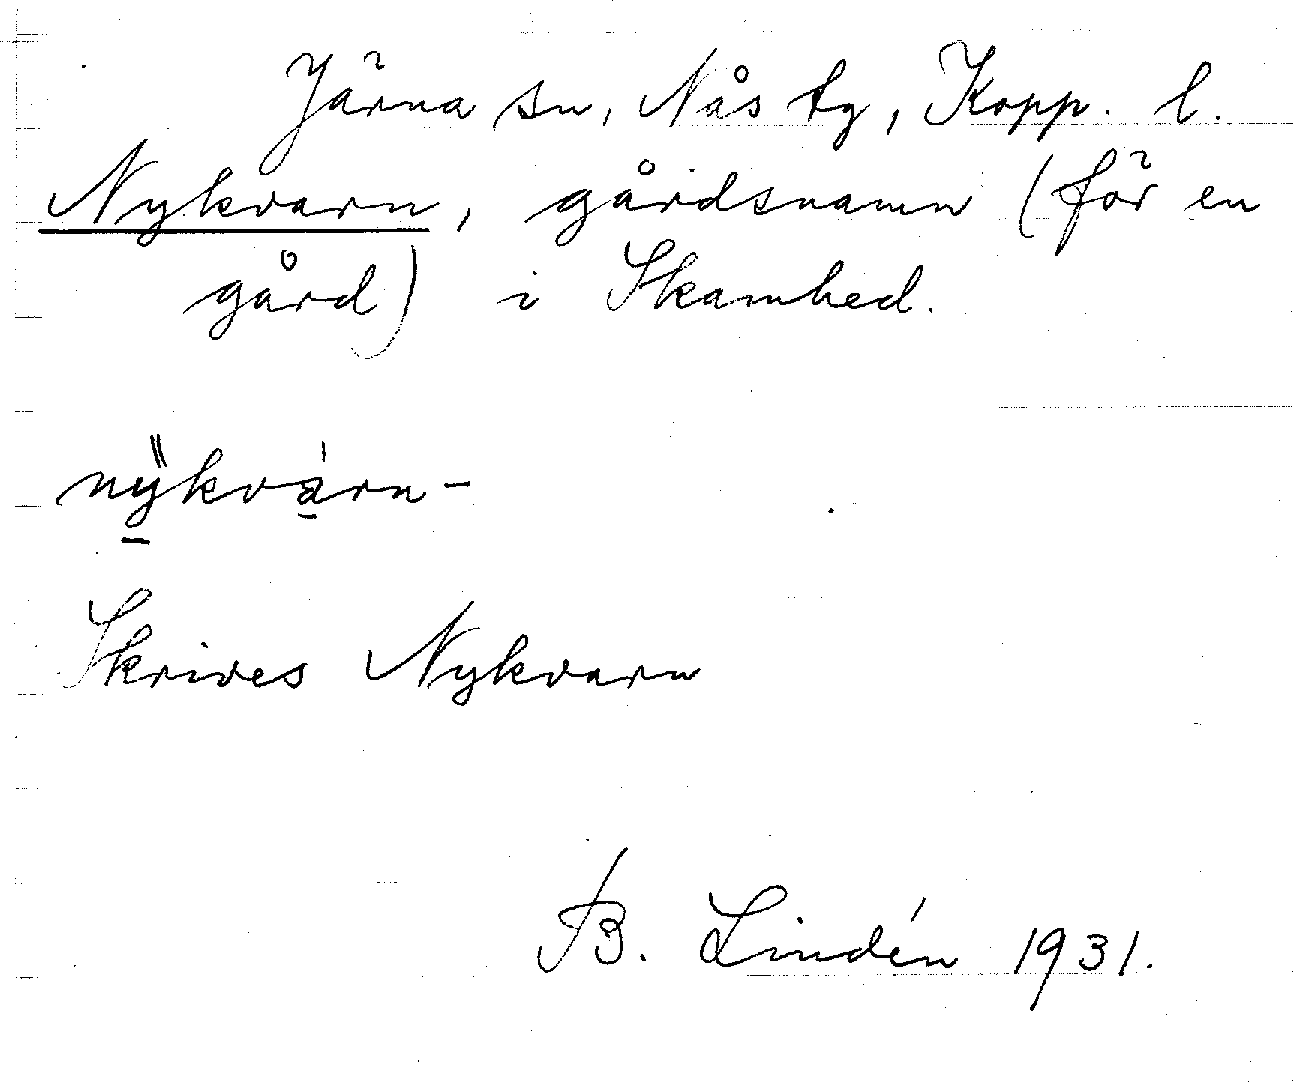 Järna sn, Nås tg, Kopp. l.
Nykvarn, gårdsnamn (för en
gård) i Skamhed.
nÿkvàrn-
Skrives Nykvarn
B. Lindén 1931.